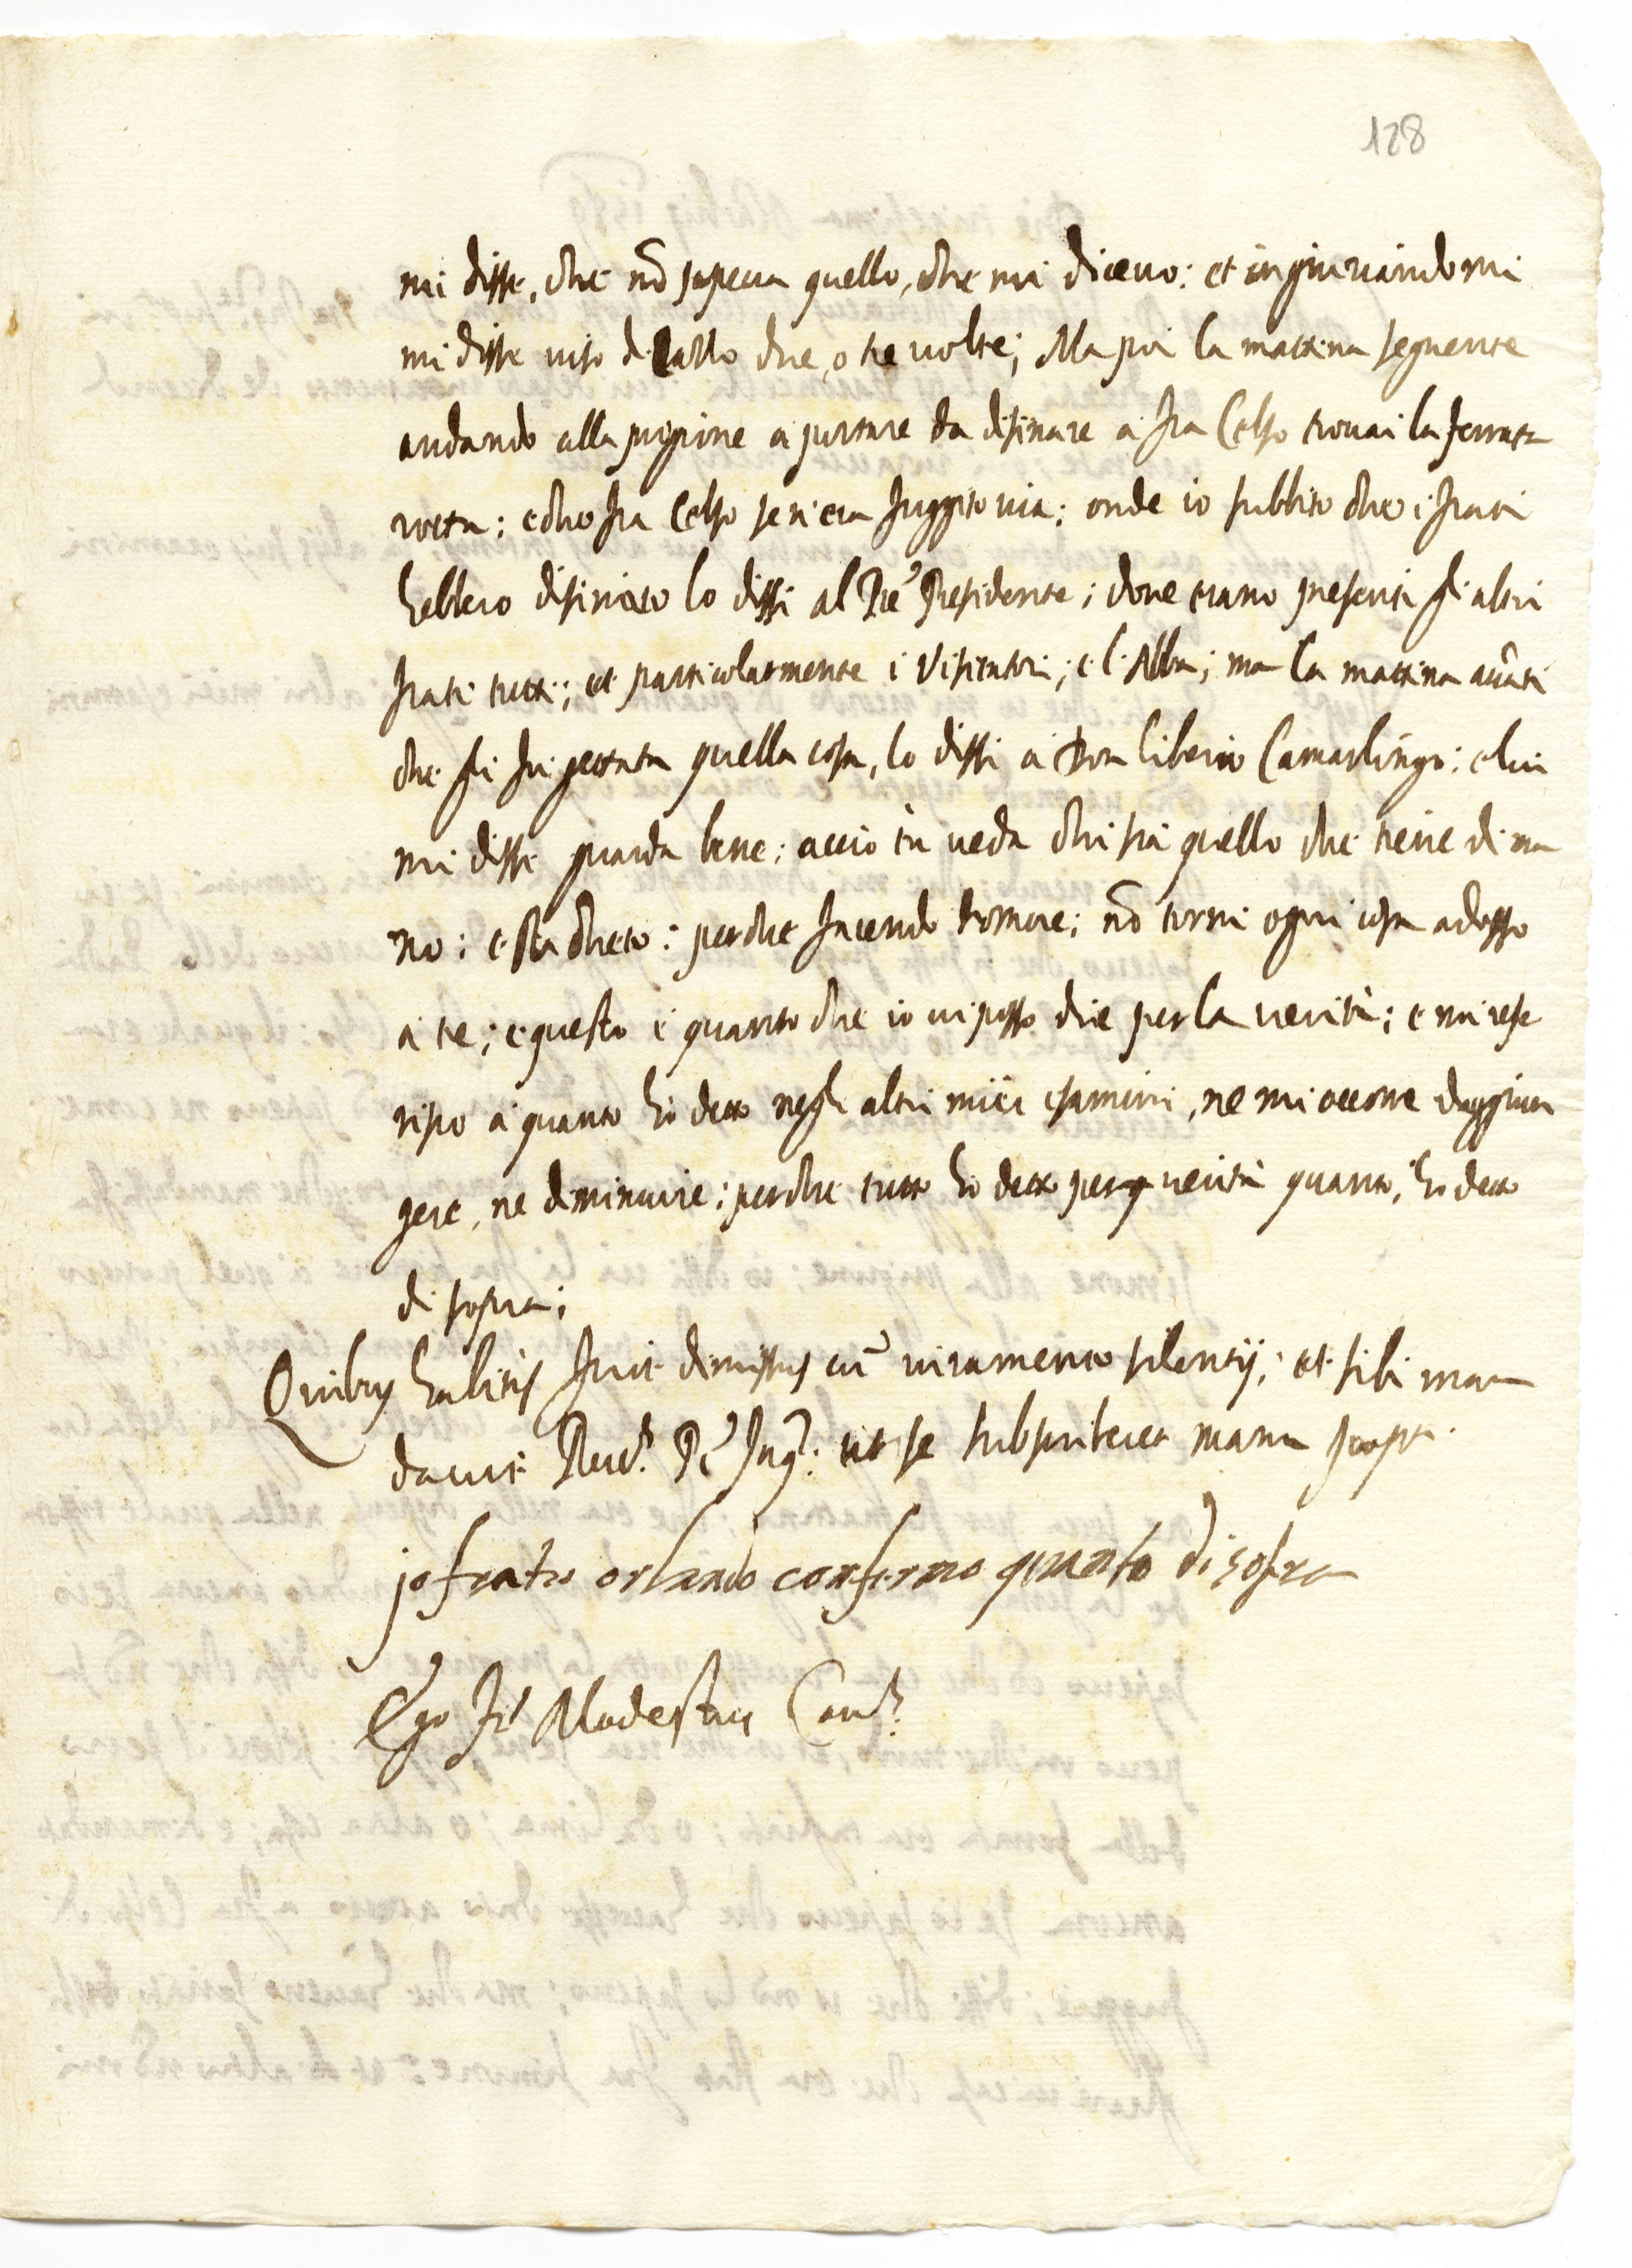 128
mi disse, che nõ sapeua quello, che mi diceuo: et ingiuriandomi
mi disse uiso di Cazzo due, o tre uolte; Ma poi la mattina seguente
andando alla prigione a portare da disinare a fra Celso trouai la ferrata
rotta; e che fra Celso se n'era fuggito uia; onde io subbito che i frati
hebbero disinato lo dissi al Pre Presidente; doue erano presenti gli altri
frati tutti; et particolarmente i Visitatori; e l'Abba; ma la mattina auãti
che gli fu gettata quella cosa, lo dissi a Don liberio Camarlingo: e lui
mi disse guarda bene; accio tu ueda chi sia quello che tiene di ma
no; e sta cheto: perche facendo romore; nõ torni ogni cosa adosso
a te; e questo è quanto che io ui posso dire per la uerità; e mi refe
risco a quanto hò detto negli altri miei esamini, ne mi occorre daggiun
gere, ne diminuire; perche tutto hò detto per uerità quanto, hò detto
di sopra;
Quibus habitis fuit dimissus cũ iuramento silentij; et sibi man
dauit Reud. Pr Inqr: ut se subscriberet manu propr.
jo fratre orlando confermo quanto di sopra
Ego Fr Modestus Canc.